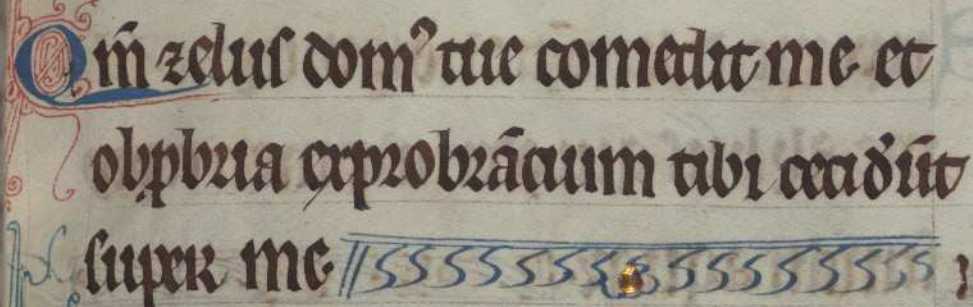 Qm̄ zelus dom⁹ tue comedit me et
obꝓbria exprobrācium tibi cecid̾ūt
super me